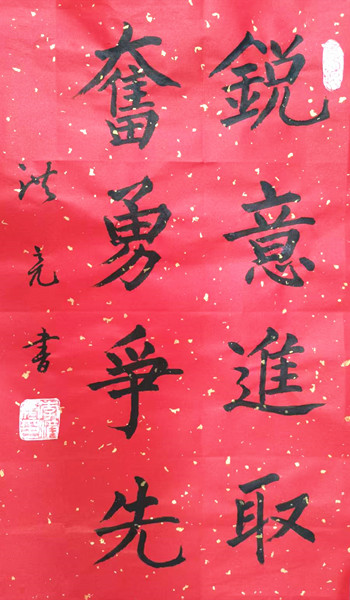 銳意進取
奮勇爭先
洪亮書